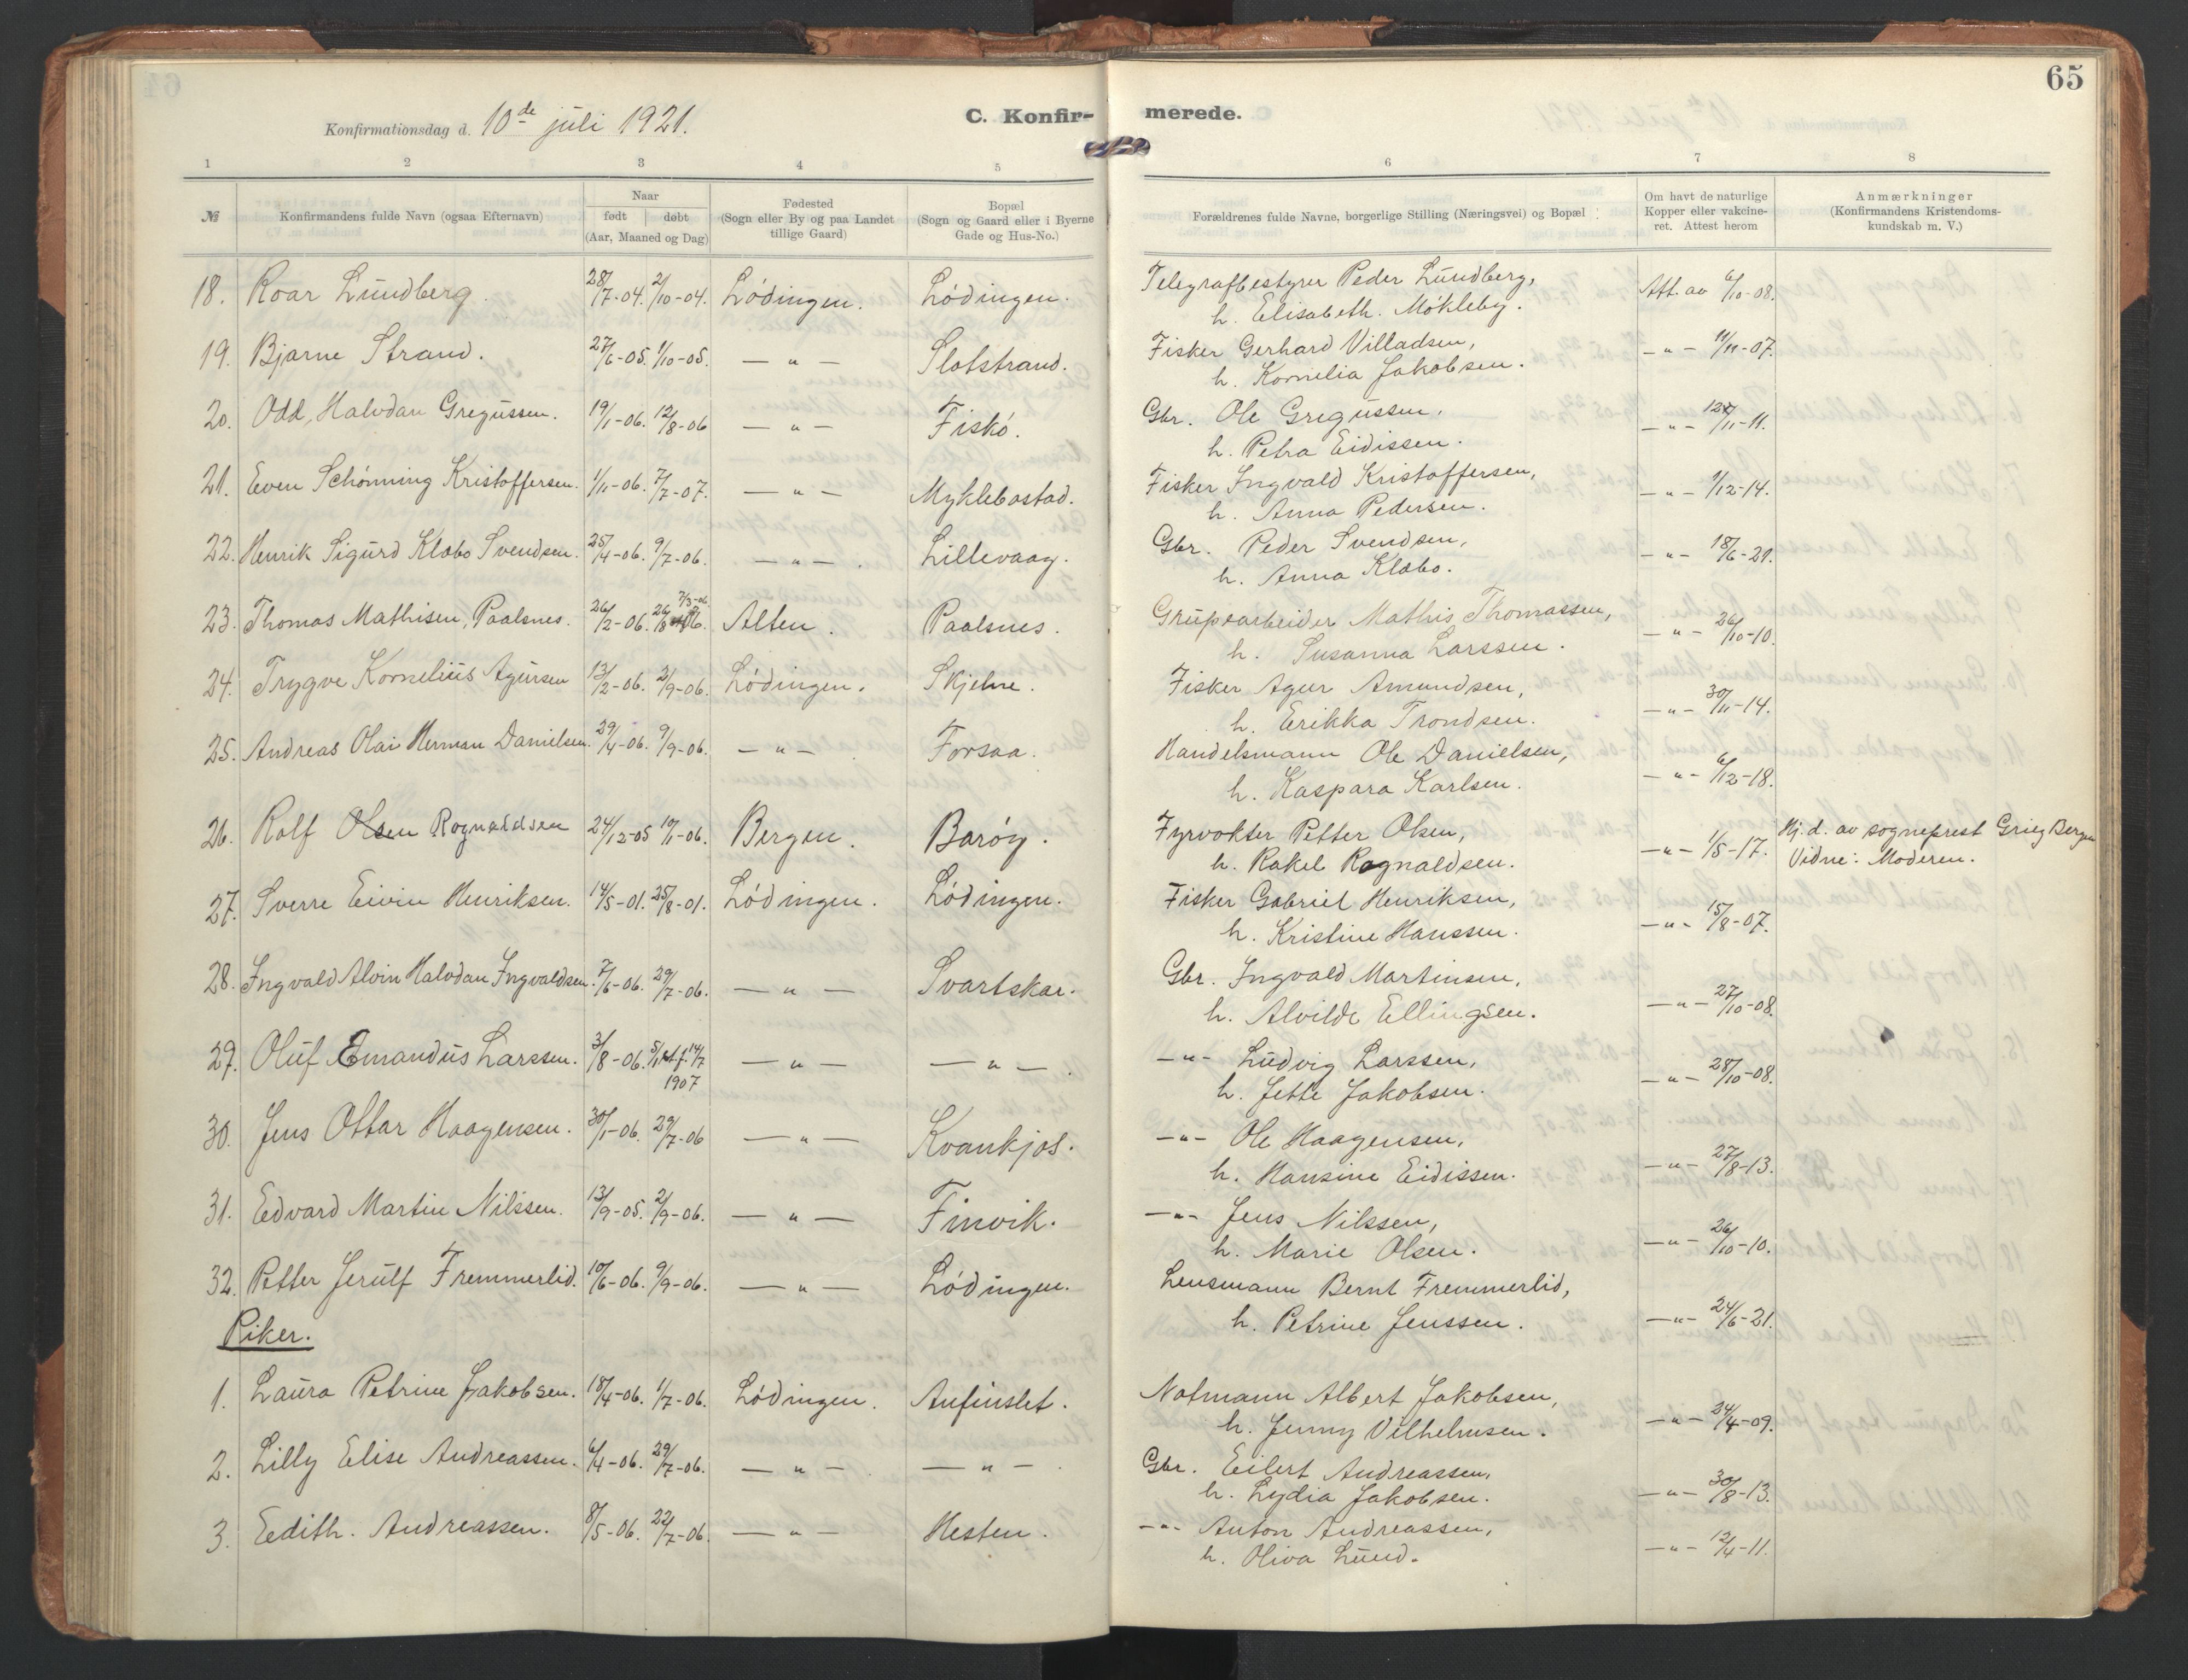 65
Konfirmationsdag d. 10de juli 1921.
C. Konfir-
merede.
1 2 3 4 5 6 7 8
№ Konfirmandens fulde Navn (ogsaa Efternavn) Naar født døbt (Aar, Maaned og Dag) Fødested (Sogn eller By og paa Landet tillige Gaard) Bopæl (Sogn og Gaard eller i Byerne Gade og Hus-No.) Forældrenes fulde Navne, borgerlige Stilling (Næringsvei) og Bopæl Om havt de naturlige Kopper eller vakcineret. Attest herom Anmærkninger (Konfirmandens Kristendomskundskab m. V.)
18. Roar Lundberg. 28/7-04. 2/10-04. Lödingen. Lödingen. Telegrafbestyrer Peder Lundberg, Att. av 6/10-08.
h. Elisabeth Mökleby.
19. Bjarne Strand. 27/6-05. 1/10-05. — " — Slotstrand. Fisker Gerhard Villadsen, — " — 11/11-07.
h. Kornelia Jakobsen.
20. Odd, Halvdan Gregussen. 19/1-06. 12/8-06 — " — Fiskö. Gbr. Ole Gregussen, — " — /11-11.
h. Petra Eidissen.
21. Even Schönning Kristoffersen. 1/11-06. 7/7-07. — " — Myklebostad. Fisker Ingvald Kristoffersen, — " — 1/12-14.
h. Anna Pedersen.
22. Henrik Sigurd Klæbo Svendsen. 25/4-06. 9/7-06. — " — . Lillevaag. Gbr. Peder Svendsen, — " — 18/6-21.
h. Anna Klæbo.
23. Thomas Mathisen, Paalsnes. 26/2-06. 26/8 06. 7/3-06. Alten. Paalsnes. Grubearbeider Mathis Thomassen, — " — 26/10-10.
h. Susanna Larssen.
24. Trygve Kornelius Agursen 13/2-06. 2/9-06. Lödingen. Skjelne. Fisker Agur Amundsen, — " — 30/11-14.
h. Erikka Trondsen.
25. Andreas Olai Herman Danielsen. 29/4-06. 9/9-06. — " — Forsaa. Handelsmann Ole Danielsen, — " — 6/12-18.
h. Kaspara Karlsen.
26. Rolf Olsen Rognaldsen 24/12-05 10/1-06. Bergen. Baröy. Fyrvokter Petter Olsen, — " — 1/5-17. Hj. d. av sogneprest Grieg Bergen
h. Rakel Rognaldsen. Vidne: Moderen.
27. Sverre Eivin Henriksen. 14/5-01. 25/8-01. Lödingen. Lödingen. Fisker Gabriel Henriksen, — " — 15/8-07.
h. Kristine Hanssen.
28. Ingvald Alvin Halvdan Ingvaldsen. 7/6-06. 29/7-06. — " — Svartskar. Gbr. Ingvald Martinsen, — " — 27/10-08.
h. Alvilde Ellingsen.
29. Oluf Emandus Larssen. 3/8-06. 14/7 1907 — " — — " — . — " — Ludvig Larssen, — " — 28/10-08.
h. Jette Jakobsen.
30. Jens Ottar Haagensen. 30/1-06. 29/7-06 — " — Kvankjos. — " — Ole Haagensen, — " — 27/8-13.
h. Hansine Eidissen.
31. Edvard Martin Nilssen. 13/9-05. 2/9-06. — " — Finvik. — " — Jens Nilssen, — " — 26/10-10.
h. Marie Olsen.
32. Petter Jerulf Fremmerlid. 10/6-06. 9/9-06. — " — Lödingen. Lensmann Bernt Fremmerlid, — " — 24/6-21.
h. Petrine Jenssen.
Piker.
1. Laura Petrine Jakobsen. 18/4-06. 1/7-06. Lödingen. Anfinslet. Notmann Albert Jakobsen, — " — 24/4-09.
h. Jenny Vilhelmsen.
2. Lilly Elise Andreassen. 6/4-06. 29/7-06. — " — . — " — . Gbr. Eilert Andreassen, — " — 30/8-13.
h. Lydia Jakobsen.
3. Eedith. Andreassen. 8/5-06. 22/7-06. — " — Hesten. — " — Anton Andreassen, — " — 12/4-11.
h. Oliva Lund.